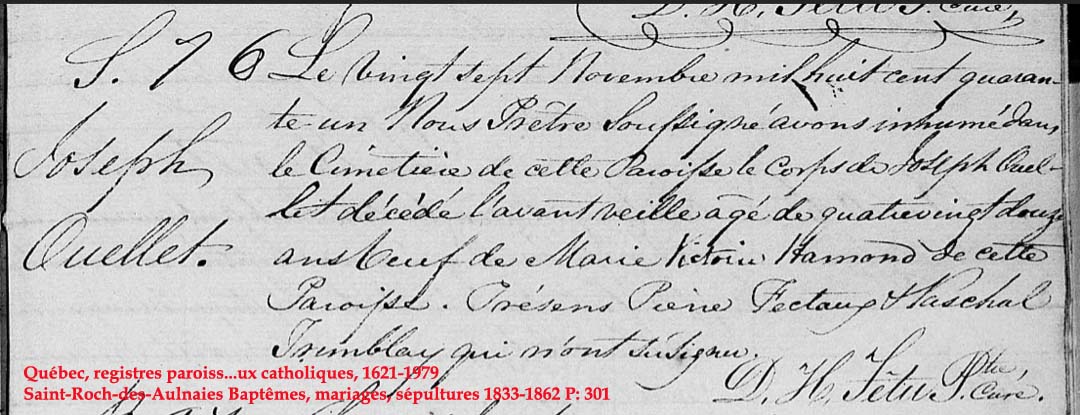 D. H. Têtu Ptre. Curé,
S. 76 Le vingt sept Novembre mil huit cent quaran-
te un Nous Prêtre Soussigné avons inhumé dans
Joseph
le Cimetière de cette Paroisse le Corps de Joseph Ouel-
let décédé l'avant veille agé de quatrevingt douze
Ouellet.
ans Veuf de Marie Victoire Hamond de cette
Paroisse. Présens Pierre Fectaux & Paschal
Tremblay qui n'ont su signer.
D. H. Têtu Ptre, Curé.
Québec, registres paroiss...ux catholiques, 1621-1979
Saint-Roch-des-Aulnaies Baptêmes, mariages, sépultures 1833-1862 P: 301